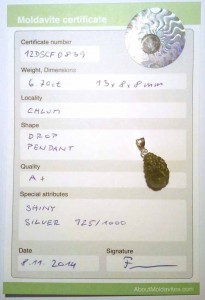 Moldavite certificate
Certificate number
12DSCF0839
Weight, Dimensions
6.70ct 13x8x8mm
Locality
CHLUM
Shape
DROP
PENDANT
Quality
A+
Special attributes
SHINY
SILVER 925/1000
Date
Signature
8.11.2014
AboutMoldavites.com